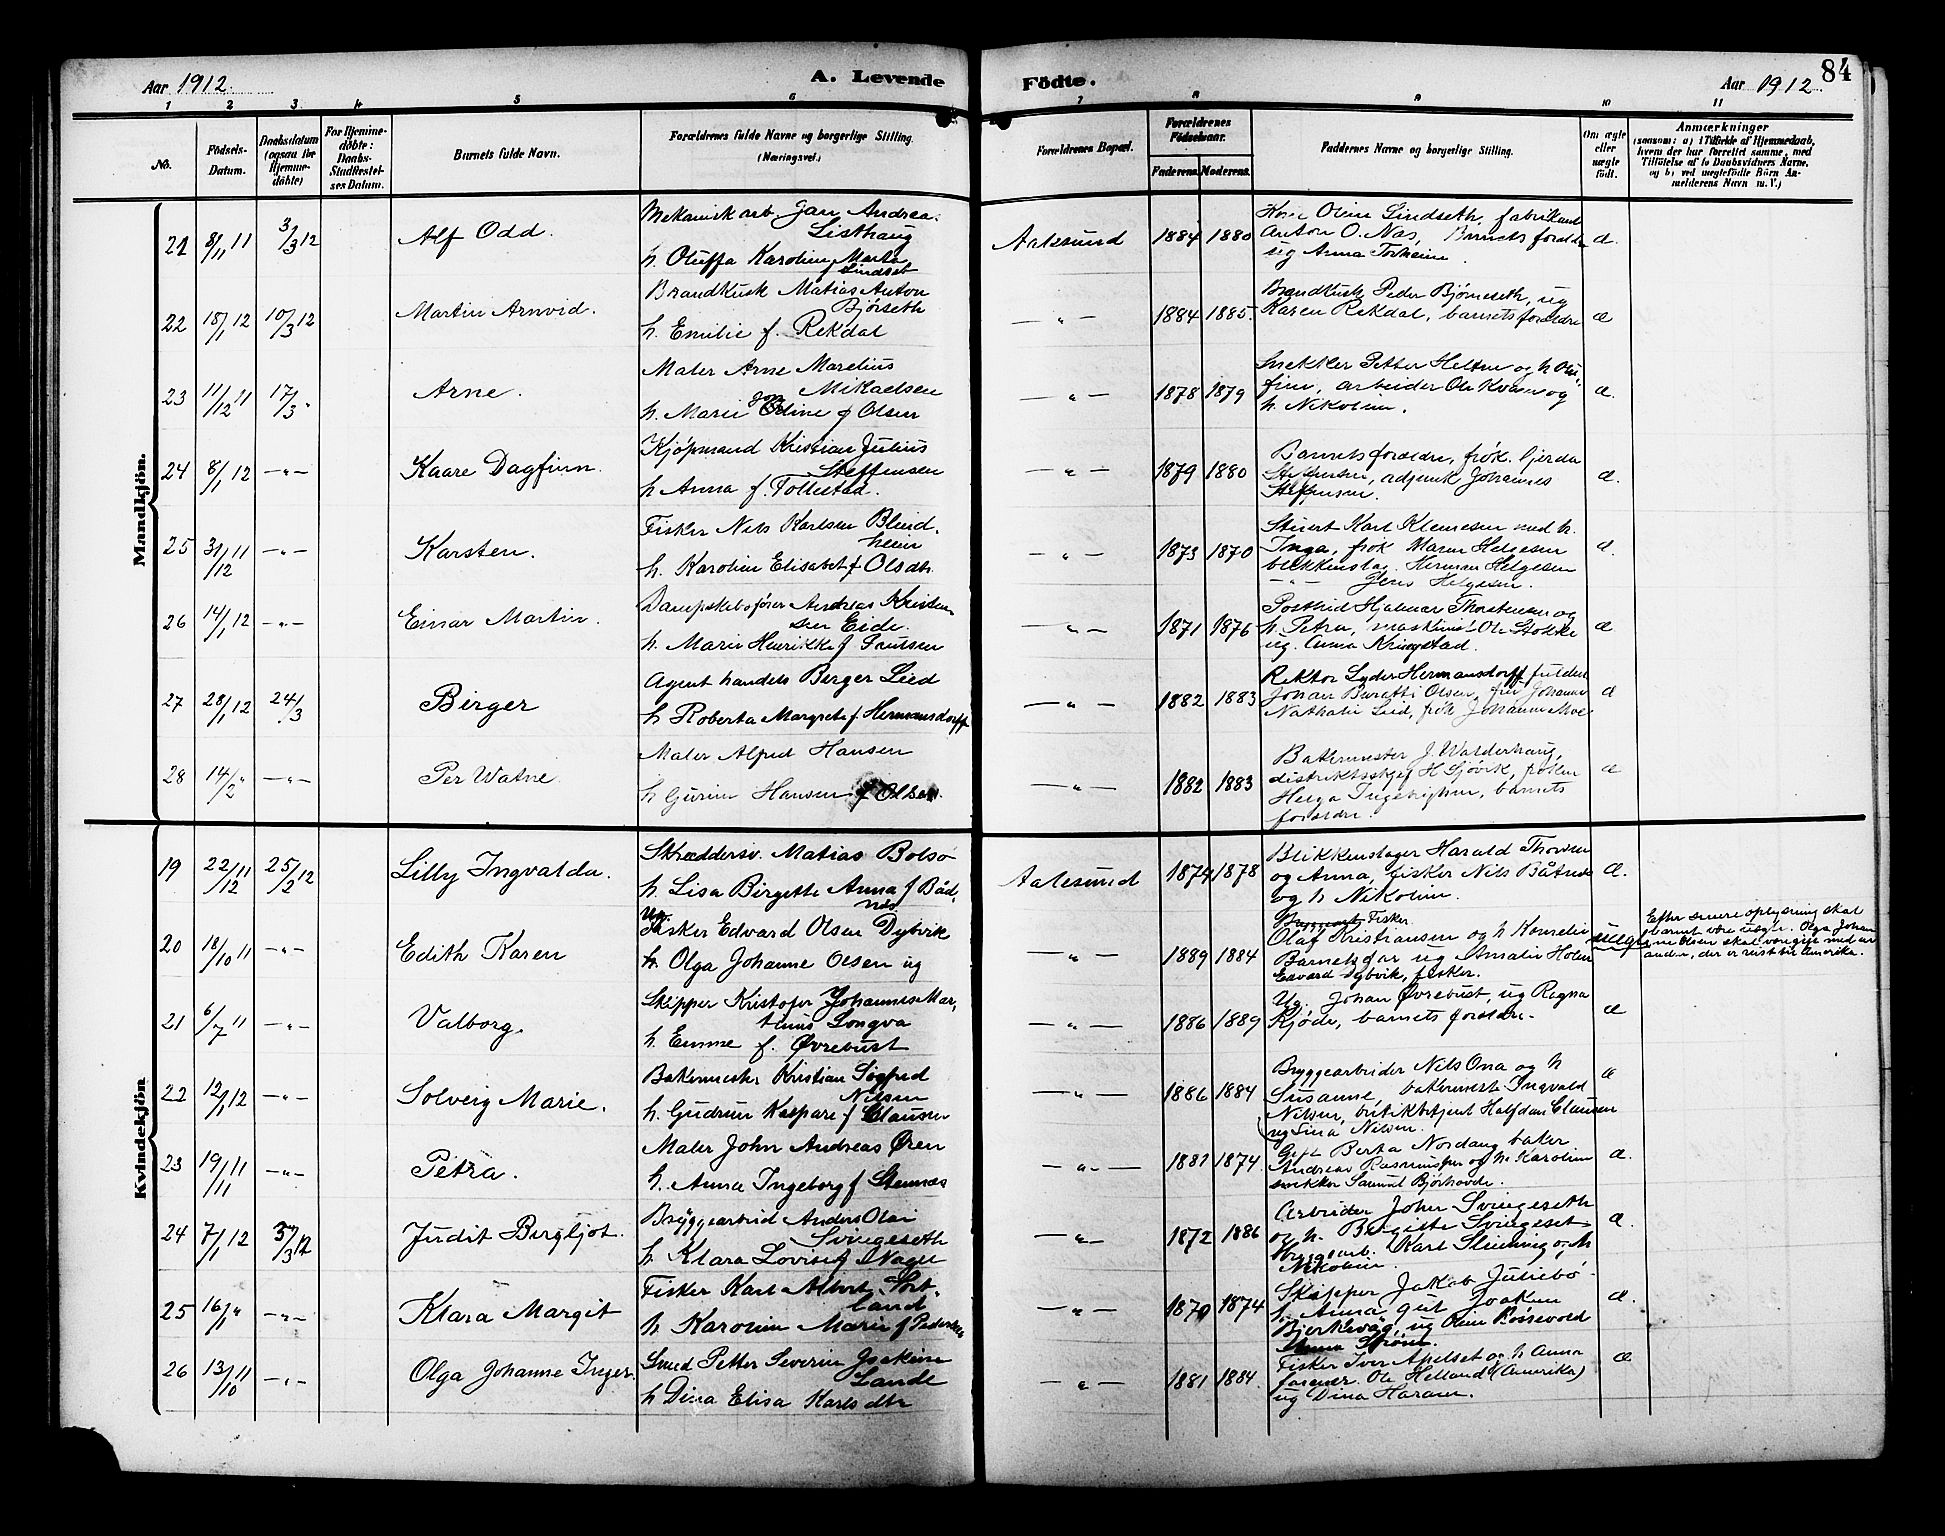 84
Aar 1912. A. Levende Födte. Aar 1912.
1 2 3 4 5 6 7 8 9 10 11
No. Födsels-Datum. Daabsdatum (ogsaa for Hjemme-döbte) For Hjemme-döbte: Daabs-Stadfæstel-ses Datum. Barnets fulde Navn. Forældrenes fulde Navne og borgerlige Stilling. (Næringsvei.) Forældrenes Bopæl. Forældrenes Födselsaar. Faderens. Moderens. Faddernes Navne og borgerlige Stilling. Om ægte eller uægte födt. Anmærkninger (saasom: a) i Tilfælde af Hjemmedaab, hvem der har forrettet samme, med Tilföielse af to Daabsvidners Navne, og b) ved uægtefödte Börn An-melderens Navn m. V.)
Mandkjön.
21 8/11 11 3/3 12 Alf Odd. Mekanisk arb. Jan Andrea. Listhaug
h. Oluffa Karoline Marta f Lindset
Aalesund 1884 1880 Oline Lindseth, fabrikant
Anton O. Næs, Barnets foreldre
ug Anna Torheim.
æ.
22 18/1 12 10/3 12 Martin Arnvid. Brandkusk Matias Anton
Bjørseth
h. Emilie f. Rekdal
— " — 1884 1885. Brandkusk Peder Bjørneseth, ug
Karen Rekdal, barnets foreldre
æ
23 11/12 11 17/3 " Arne. Maler Arne Marelius
Mikaelsen
h. Marie f Olsen
— " — 1878 1879 Snekker Petter Helsem og h Olu-
fine, arbeider Ole Kvamen og
h. Nikoline.
æ.
24 8/1 12 — " — Kaare Dagfinn. Kjøpmand Kristian Julius
Steffensen
h Anna f. Tollestad.
— " — 1879 1880 Barnets foreldre, frøk. Gjerda
Steffensen, adjunk Johannes
Steffensen.
æ.
25 31/12 11 — " — Karsten. Fisker Nils Karlsen Blind-
heim
h. Karoline Elisabet f Olsdtr.
— " — 1873 1870 Stuert Karl Klemesen med h.
Inga, frøk Maren Helgesen
blekkenslag. Herman Helgesen
— " — Jens Helgesen.
æ.
26 14/1 12 — " — Einar Martin. Dampskibsfører Andreas Kristen
sen Eide.
h. Marie Henrikke f Paulsen
— " — 1871 1876 Postbud Hjalmar Thorstensen og
h. Petra, maskinist Ole Stokke
ug. Anna Kringstad.
æ
27 28/1 12 24/3 Birger Agent handels Berger Lied
h Roberta Margrete f Hermansdorff
— " — 1882 1883 Rektor Lyder Hermansdorff fuldm.
Johan Baretti Olsen, fru Johanne
Nathalie Lied, frøk Johanne Moe
æ
28 14/2 " — " — Per Watne Maler Alfred Hansen
h Gurine Hansen f Olsen.
— " — 1882 1883 Bakermester J. Walderhaug,
distriktsskjef H Sjøvik, frøken
Helga Ingebrigtsen, barnets
foreldre.
æ
Kvindekjön
19 22/12 11 25/2 12 Lilly Ingvalda. Skreddersv. Matias Bolsø
h. Lisa Birgette Anna f Båd-
nes
Aalesund 1874 1878 Blikkenslager Harald Thorsen
og Anna, fisker Nils Båtnes
og h Nikoline.
æ.
20 18/10 11 — " — Edith Karen Ug. Fisker Edvard Olsen Dybvik
Olga Johanne Olsen ug
— " — 1889 1884 Fisker
Olaf Kristiansen og h Kornelie
Barnets far ug Amalie Holen
Edvard Dybvik, fisker.
uægte
Efter senere oplysning skal
barnet være uægte. Olga Johan
ne Olsen skal være gift med en
anden, der er reist til Amerika.
21 6/7 11 — " — Valborg. Skipper Kristofer Johannes Mar-
tinus Longva
h. Emme f. Øvrebust
— " — 1886 1889 Ug. Johan Øvrebust, ug Ragna
Kjøde, barnets foreldre.
æ
22 12/1 12 — " — Solveig Marie. Bakermester Kristian Sigfred
Nilsen
h. Gudrun Kaspare f Clausen
— " — 1886 1884 Bryggearbeider Nils Ona og h
Susanne, bakersvert Ingvald
Nilsen, butikbetjent Halfdan Clausen
ug Lina Nilsen.
æ
23 19/11 11 — " — Petra. Maler John Andreas Øren
h. Anna Ingeborg f Stennæs
— " — 1881 1874 Gift Berta Nordang baker
Andreas Rasmussen og h. Karoline
snekker Samuel Bjørhovde.
æ.
24 7/1 12 3/3 12 Judit Bergljot. Bryggearbeid Anders Olai
Svingeseth
h Klara Lovise f Nagel
— " — 1872 1886 Arbeider John Svingeseth
og h. Birgitte Svingeset
Bryggearb. Karl Slinning o. h
Nikoline.
æ.
25 16/1 " — " — Klara Margit Fisker Karl Albert
land
h Karoline Marie f Pedersen
— " — 1870 1874 Skipper Jakob Juliebø
h. Anna gut Joaken
Bjerkevåg, ug Oline Røssevold
Anna Strøm.
æ.
26 13/10 11 — " — Olga Johanne Inger. Smed Petter Severin Joakim
Sande
h Dina Elisa Karlsdtr
— " — 1881 1884. Fisker Iver Apelset og h Anna
Ole Helland (Amerika)
ug Dina Haram.
æ